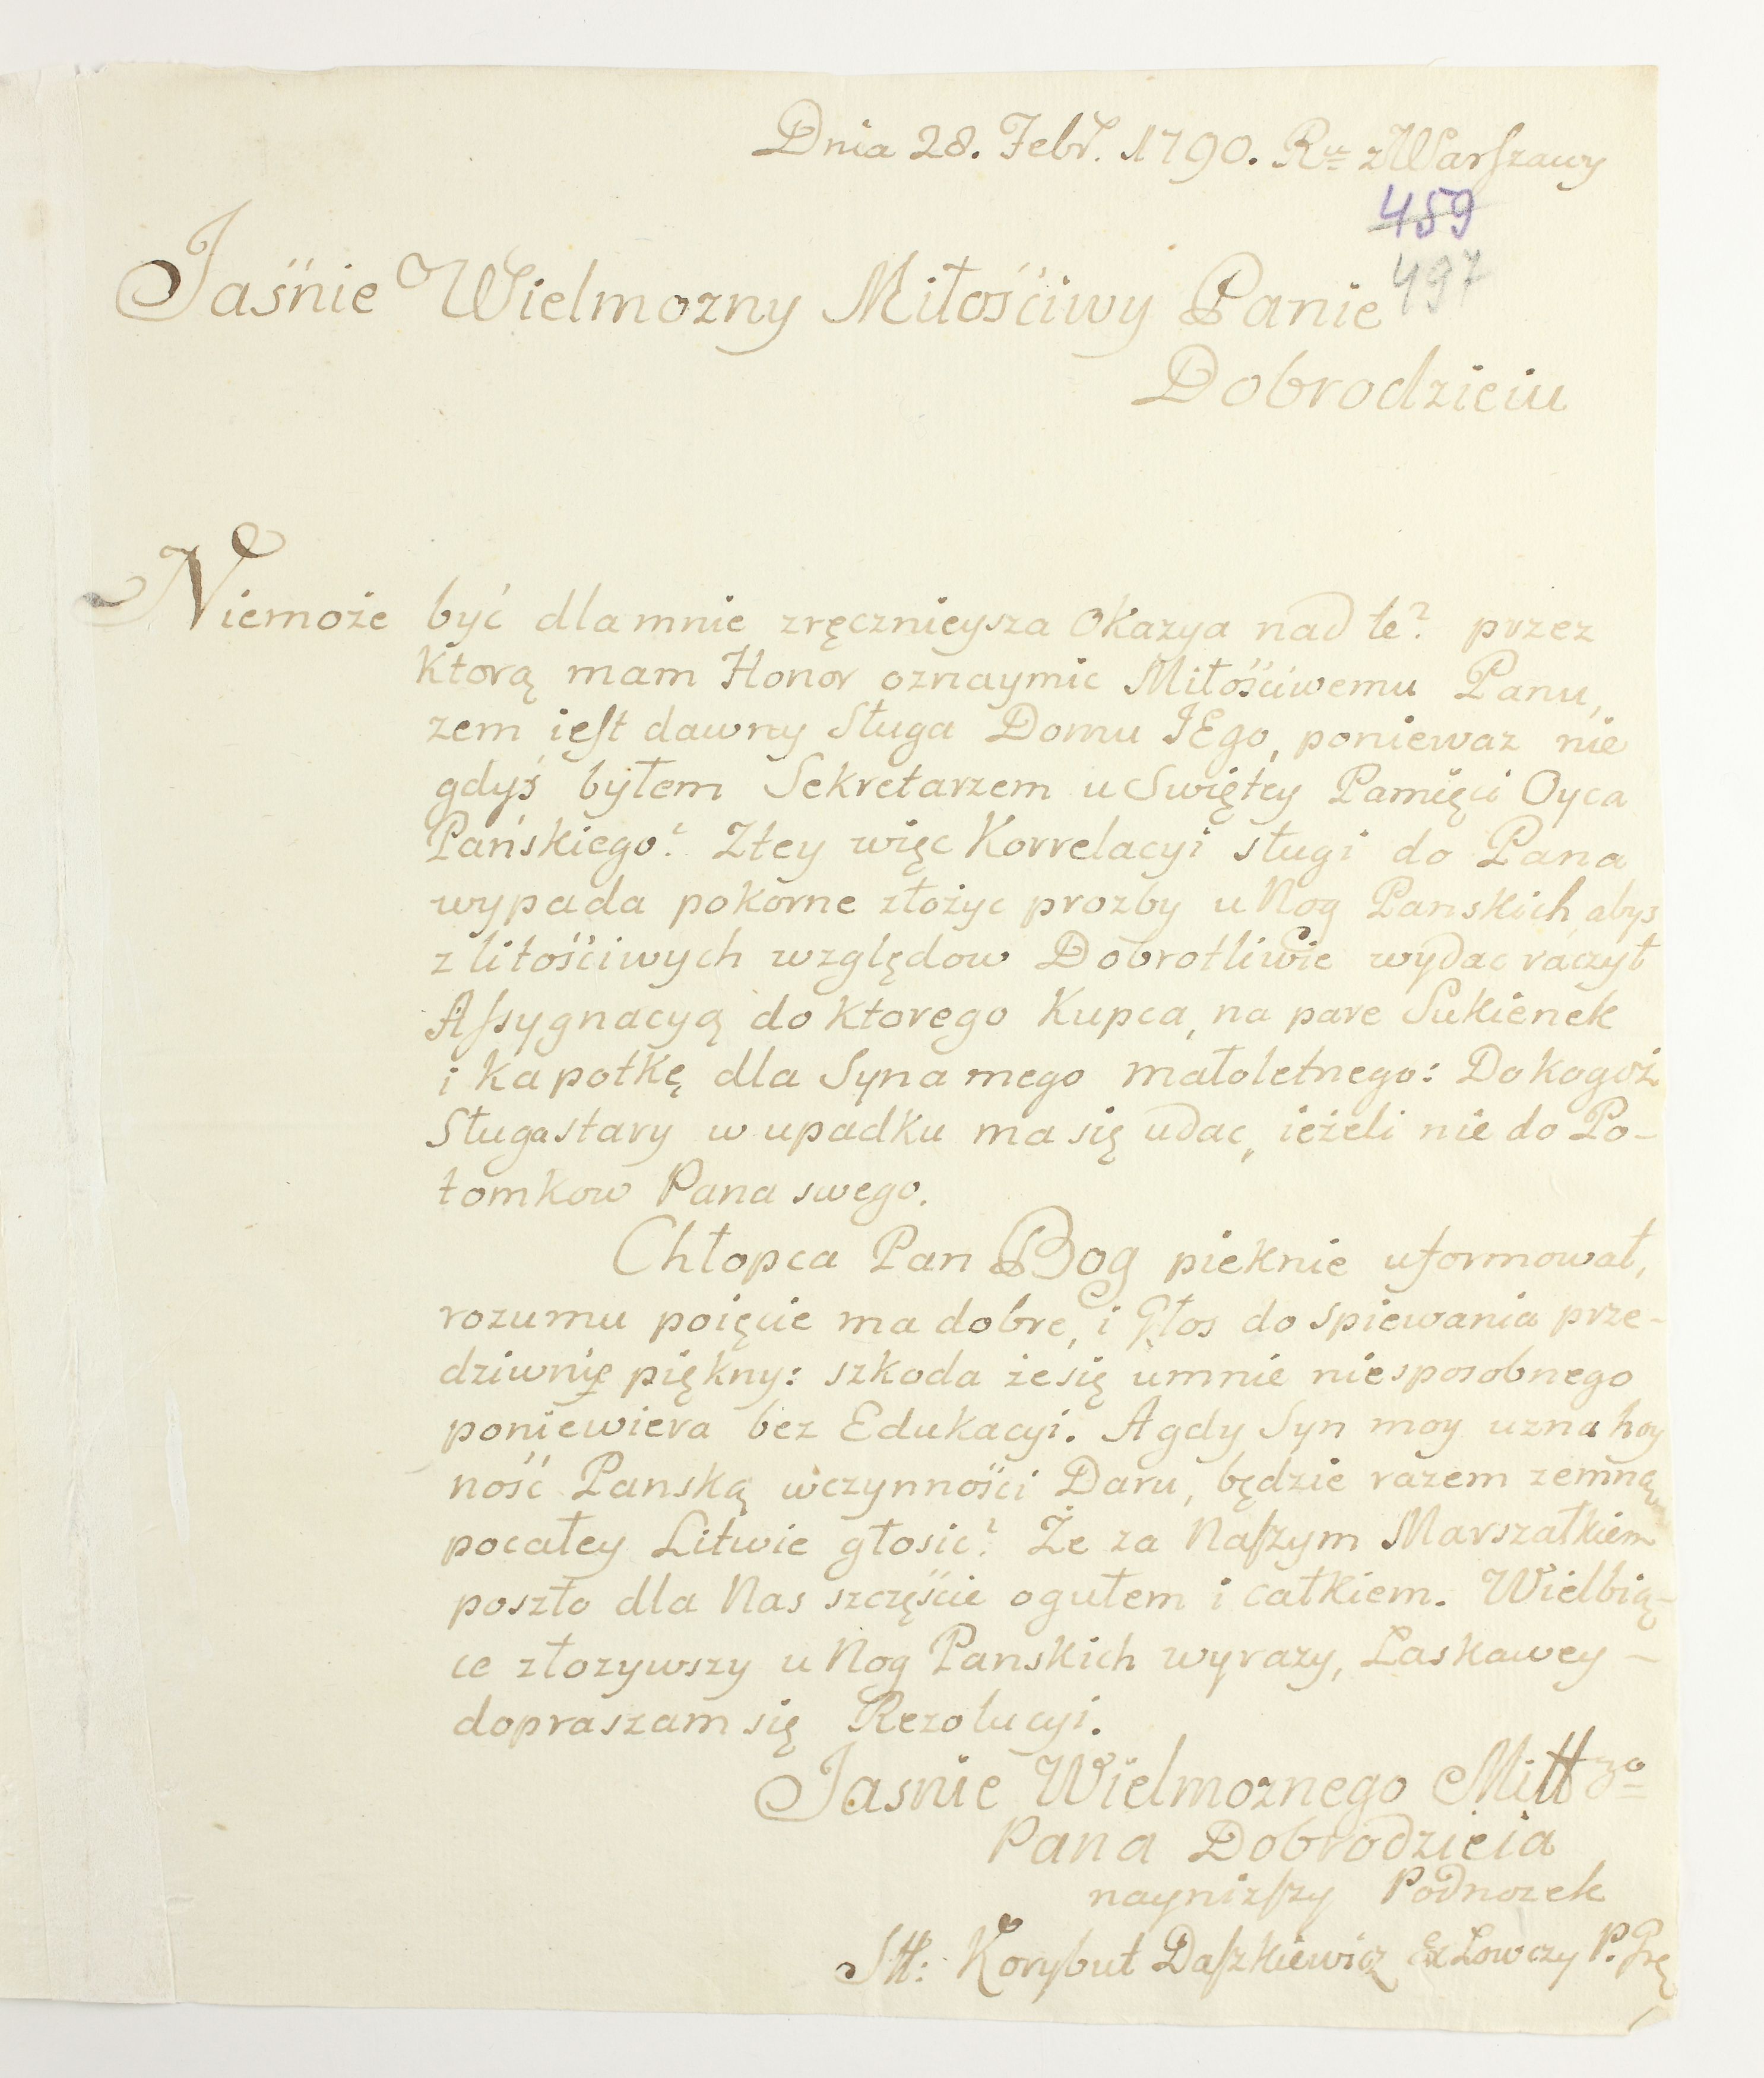 Dnia 28. Febr. 1790. Ru z Warſzawy
459
497
Jaśnie Wielmozny Miłościwy Panie
Dobrodzieiu
Niemoże być dlamnie zręcznieysza Okazya nad te? przez
Ktorą mam Honor oznaymic Miłościwemu Panu,
zem ieſt dawny Sługa Domu JEgo, poniewaz nie
gdyś byłem Sekretarzem u Swiętey Pamięci Oyca
Pańskiego? Ztey więc Korrelacyi sługi do Pana
wypada pokorne złożyc prozby u Nog Panskich abys
z litościwych względow Dobrotliwie wydac raczył
Aſsygnacyą do ktorego Kupca, na pare Sukienek
i kapotkę dla Syna mego małoletnego: Do kogoż
Sługa stary w upadku ma się udac, ieżeli nie do Po-
tomkow Pana swego.
Chłopca Pan Bog pieknie uformował,
rozumu poięcie ma dobre, i Głos do spiewania prze-
dziwnie piękny: szkoda że się umnie niesposobnego
poniewiera bez Edukacyi. A gdy Syn moy uzna hoy
ność Panską wczynności Daru, będzie razem zemną
pocałey Litwie głosic? Że za Naſzym Marszałkiem
poszło dla Nas szczęście ogułem i całkiem. Wielbią-
ce złozywszy u Nog Panskich wyrazy, Laskawey -
dopraszam się Rezolucyi.
Jasnie Wielmoznego Miłł go
Pana Dobrodzieia
nayniżſzy Podnozek
Korybut Daſzkiewicz Ex Łowczy P.